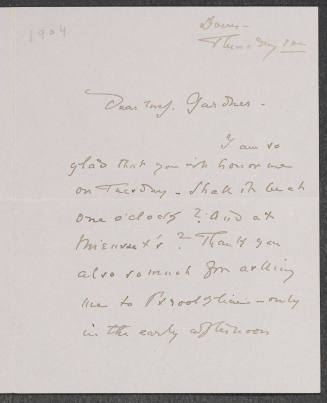 1904
Dover -
Thursday
Dear Mrs. Gardner -
I am so
glad that you will honor me
on Tuesday - Shall it be at
one o'clock? And at
? Thank you
also so much for asking
me to Brookline - only
in the early afternoon